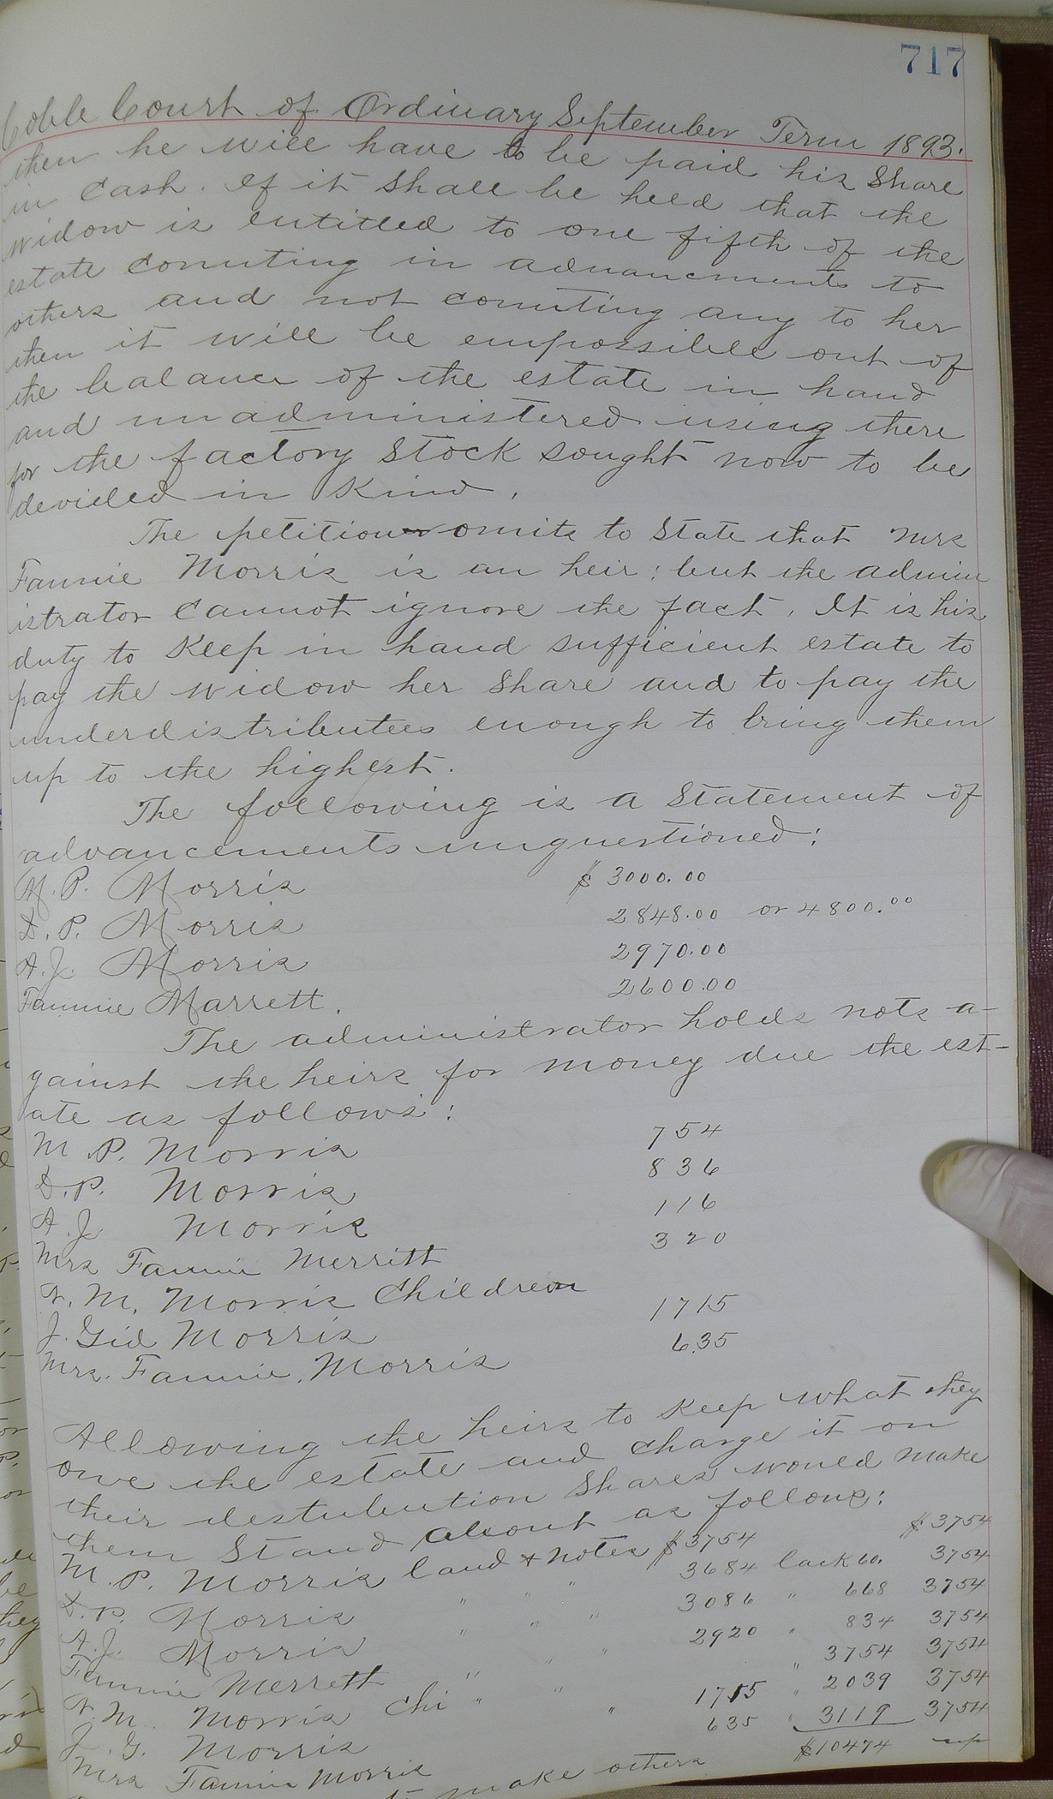 717
Coble Court of Ordinary September Term 1893.
then he will have to be paid his share
in Cash. If it shall be held that the
widow is entitled to one fifth of the
estate counting in advancments to
others and not counting any to her
then it will be empossible out of
the balance of the estate in hand
and unadministered using there
for the factory Stock sought now to be
devided in Kind.
The petition omits to State that Mrs
Fannie Morris is an heir; but the admin
istrator cannot ignore the fact. It is his
duty to Keep in hand sufficient estate to
pay the widow her share and to pay the
underdistributees enough to bring them
up to the highest.
The following is a Statement of
advancements unquestioned:
M. P. Morris $3000.00
D. P. Morris 2848.00 or 4800.00
A. J. Morris 2970.00
Fannie Marrett. 2600.00
The administrator holds nots a-
gainst the heirs for money due the est-
ate as follows:
M. P. Morris 754
D. P. Morris 836
A. J. Morris 116
Mrs Fannie Merritt 320
N. M. Morris Children
J. Gid Morris 1715
Mrs. Fannie Morris 635
Allowing the heirs to Keep what they
owe the estate and charge it on
their destubution Shares would make
them Stand about as follows:
M. P. Morris land & notes $3754 $3754
D. P. Morris " " 3684 lack 60. 3754
A. J. Morris " " " 3086 " 668 3754
Fannie Merrett " " " 2920 " 834 3754
N. M. Morris Chi " " " " 3754 3754
J. G. Morris " 1715 " 2039 3754
Mrs Fannie Morris 635 " 3119 3754
$10474 up
make others